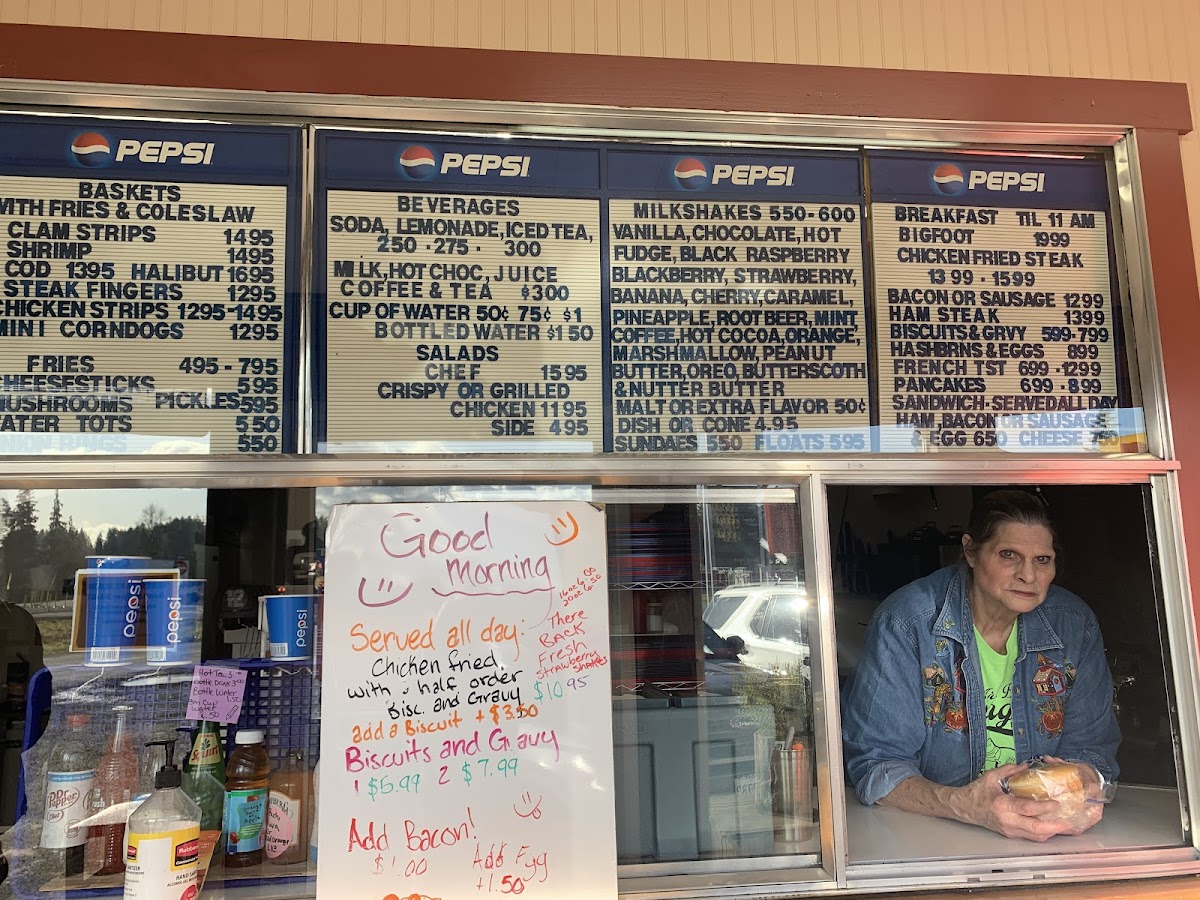 PEPSI
BASKETS
WITH FRIES & COLESLAW
CLAM STRIPS 1495
SHRIMP 1495
COD 1395 HALIBUT 1695
STEAK FINGERS 1295
CHICKEN STRIPS 1295-1495
MINI CORNDOGS 1295
FRIES 495-795
CHEESESTICKS 595
MUSHROOMS PICKLES 595
TATER TOTS 550
ONION RINGS 550
PEPSI
BEVERAGES
SODA, LEMONADE, ICED TEA,
250 · 275 · 300
MILK, HOT CHOC, JUICE
COFFEE & TEA $300
CUP OF WATER 50¢ 75¢ $1
BOTTLED WATER $1 50
SALADS
CHEF 1595
CRISPY OR GRILLED
CHICKEN 1195
SIDE 495
PEPSI
MILKSHAKES 550-600
VANILLA, CHOCOLATE, HOT
FUDGE, BLACK RASPBERRY
BLACKBERRY, STRAWBERRY,
BANANA, CHERRY, CARAMEL,
PINEAPPLE, ROOT BEER, MINT
COFFEE, HOT COCOA, ORANGE,
MARSHMALLOW, PEANUT
BUTTER, OREO, BUTTERSCOTH
& NUTTER BUTTER
MALT OR EXTRA FLAVOR 50¢
DISH OR CONE 4.95
SUNDAES 550 FLOATS 595
PEPSI
BREAKFAST TIL 11 AM
BIGFOOT 1999
CHICKEN FRIED STEAK
1399 - 1599
BACON OR SAUSAGE 1299
HAM STEAK 1399
BISCUITS & GRVY 599-799
HASHBRNS & EGGS 899
FRENCH TST 699-1299
PANCAKES 699-899
SANDWICH-SERVED ALL DAY
HAM, BACON OR SAUSAGE
& EGG 650 CHEESE 750
Good
morning
Served all day:
Chicken fried
with half order
Bisc. and Gravy $10 95
add a Biscuit + $3.50
Biscuits and Gravy
1 $5.99 2 $7.99
Add Bacon!
$1.00
Add Egg
+1.50
16oz 6.00
20oz 6.50
There
BACK
Fresh
strawberry
shakes
pepsi
pepsi
pepsi
Hot Tea 3
Bottle Drink 3.00
Bottle Water
1.50
Sm Cup
Water
.50
Dr Pepper
Diet
Rubbermaid
HAND SANITIZER